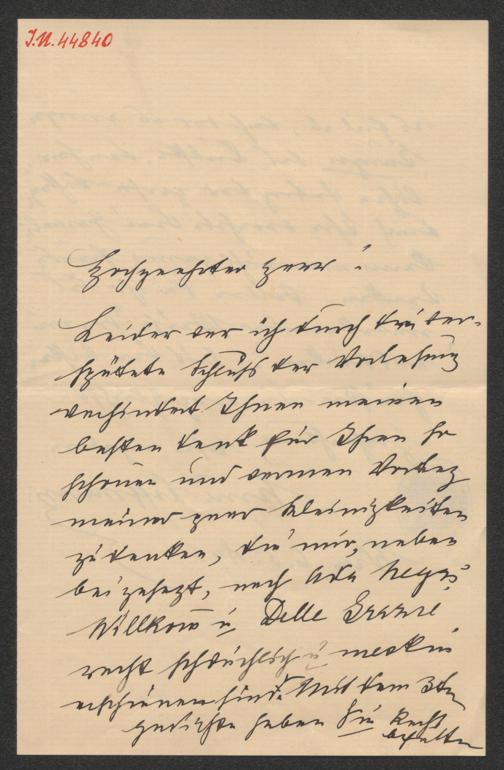 J.N. 44840
Hochgeehrter Herr!
Leider war ich durch die ver-
spätete Schluß der Vorlesung
verhindert Ihnen meinen
besten Dank für Ihren so
schönen und warmen Vortrag
meiner paar Kleinigkeiten
zu danken, die mir, neben
beigesetzt, nach Ada Negri,
Willkom u. Delle Grazie
recht schwächlich u
erschienen sind. Mit dem 3ten
Gedichte haben Sie Recht
behalten